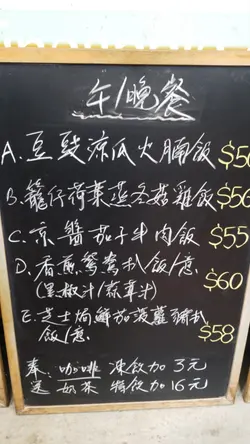 午/晚餐
A. 豆豉涼瓜火腩飯 $56
B. 籠仔荷葉蒸冬菇雞飯 $56
C. 京醬茄子牛肉飯 $55
D. 香煎鴛鴦扒飯/意
(黑椒汁/蒜茸汁) $60
E. 芝士焗鮮茄菠蘿豬扒
飯/意 $58
奉: 咖啡 凍飲加 3元
送 奶茶 特飲加 16元